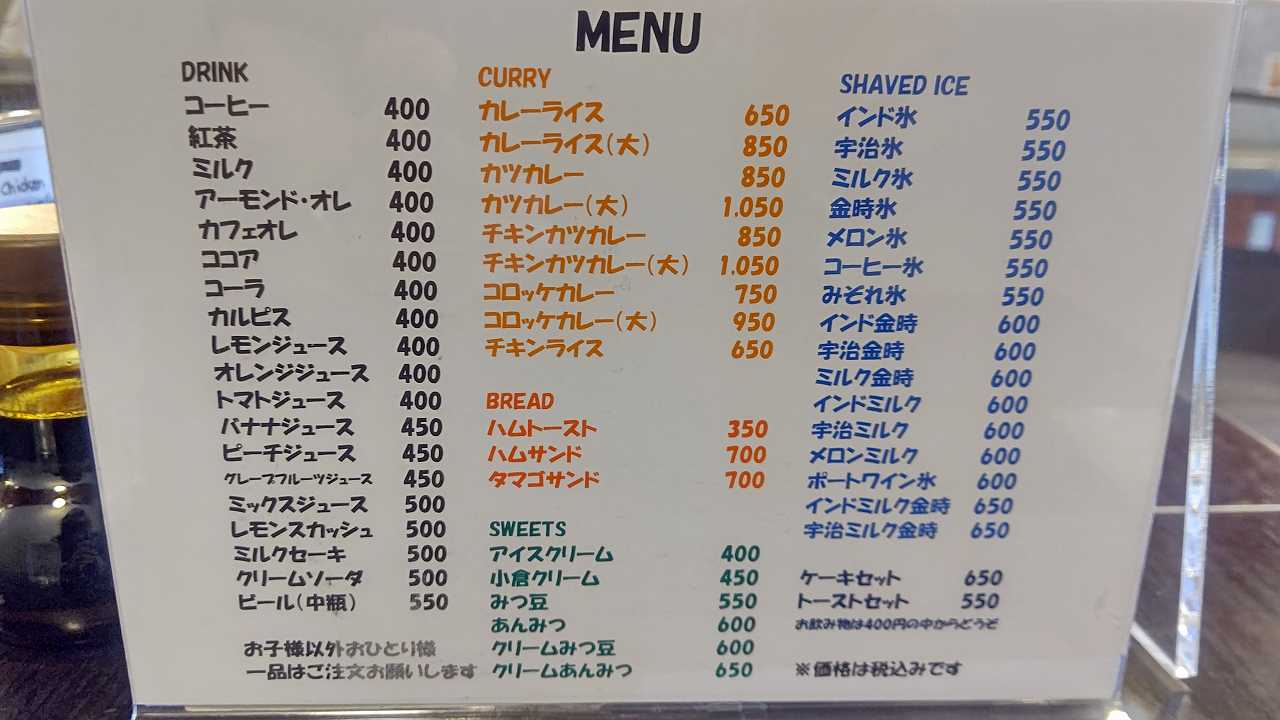 MENU
DRINK
コーヒー 400
紅茶 400
ミルク 400
アーモンド・オレ 400
カフェオレ 400
ココア 400
コーラ 400
カルピス 400
レモンジュース 400
オレンジジュース 400
トマトジュース 400
バナナジュース 450
ピーチジュース 450
グレープフルーツジュース 450
ミックスジュース 500
レモンスカッシュ 500
ミルクセーキ 500
クリームソーダ 500
ビール(中瓶) 550
お子様以外おひとり様
一品はご注文お願いします
CURRY
カレーライス 650
カレーライス(大) 850
カツカレー 850
カツカレー(大) 1.050
チキンカツカレー 850
チキンカツカレー(大) 1.050
コロッケカレー 750
コロッケカレー(大) 950
チキンライス 650
BREAD
ハムトースト 350
ハムサンド 700
タマゴサンド 700
SWEETS
アイスクリーム 400
小倉クリーム 450
みつ豆 550
あんみつ 600
クリームみつ豆 600
クリームあんみつ 650
SHAVED ICE
インド氷 550
宇治氷 550
ミルク氷 550
金時氷 550
メロン氷 550
コーヒー氷 550
みぞれ氷 550
インド金時 600
宇治金時 600
ミルク金時 600
インドミルク 600
宇治ミルク 600
メロンミルク 600
ポートワイン氷 600
インドミルク金時 650
宇治ミルク金時 650
ケーキセット 650
トーストセット 550
お飲み物は400円の中からどうぞ
※価格は税込みです
Chicken